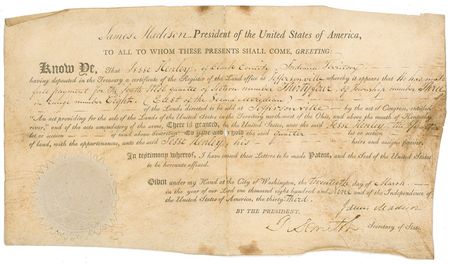 James Madison, President of the United States of America,
TO ALL TO WHOM THESE PRESENTS SHALL COME, GREETING:
KNOW YE, That Jesse Henley of Clark County Indiana Territory
having deposited in the Treasury a certificate of the Register of the Land office at Jeffersonville whereby it appears that He has made
full payment for the South West quarter of Section number Thirty five of Township number Three
in Range number Eight East of the Second Meridian
of the Lands directed to be sold at Jeffersonville by the act of Congress, entitled
"An act providing for the sale of the Lands of the United States in the Territory northwest of the Ohio, and above the mouth of Kentucky
river," and of the acts amendatory of the same, There is granted, by the United States, unto the said Jesse Henley the
lot or section of land above described: To have and to hold the said quarter
of land, with the appurtenances, unto the said Jesse Henley his heirs and assigns forever.
In testimony whereof, I have caused these Letters to be made Patent, and the Seal of the United States
to be hereunto affixed.
Given under my Hand at the City of Washington, the Twentieth day of March
in the year of our Lord one thousand eight hundred and Nine and of the Independence of
the United States of America, the thirty Third.
James Madison
BY THE PRESIDENT.
R Smith Secretary of State